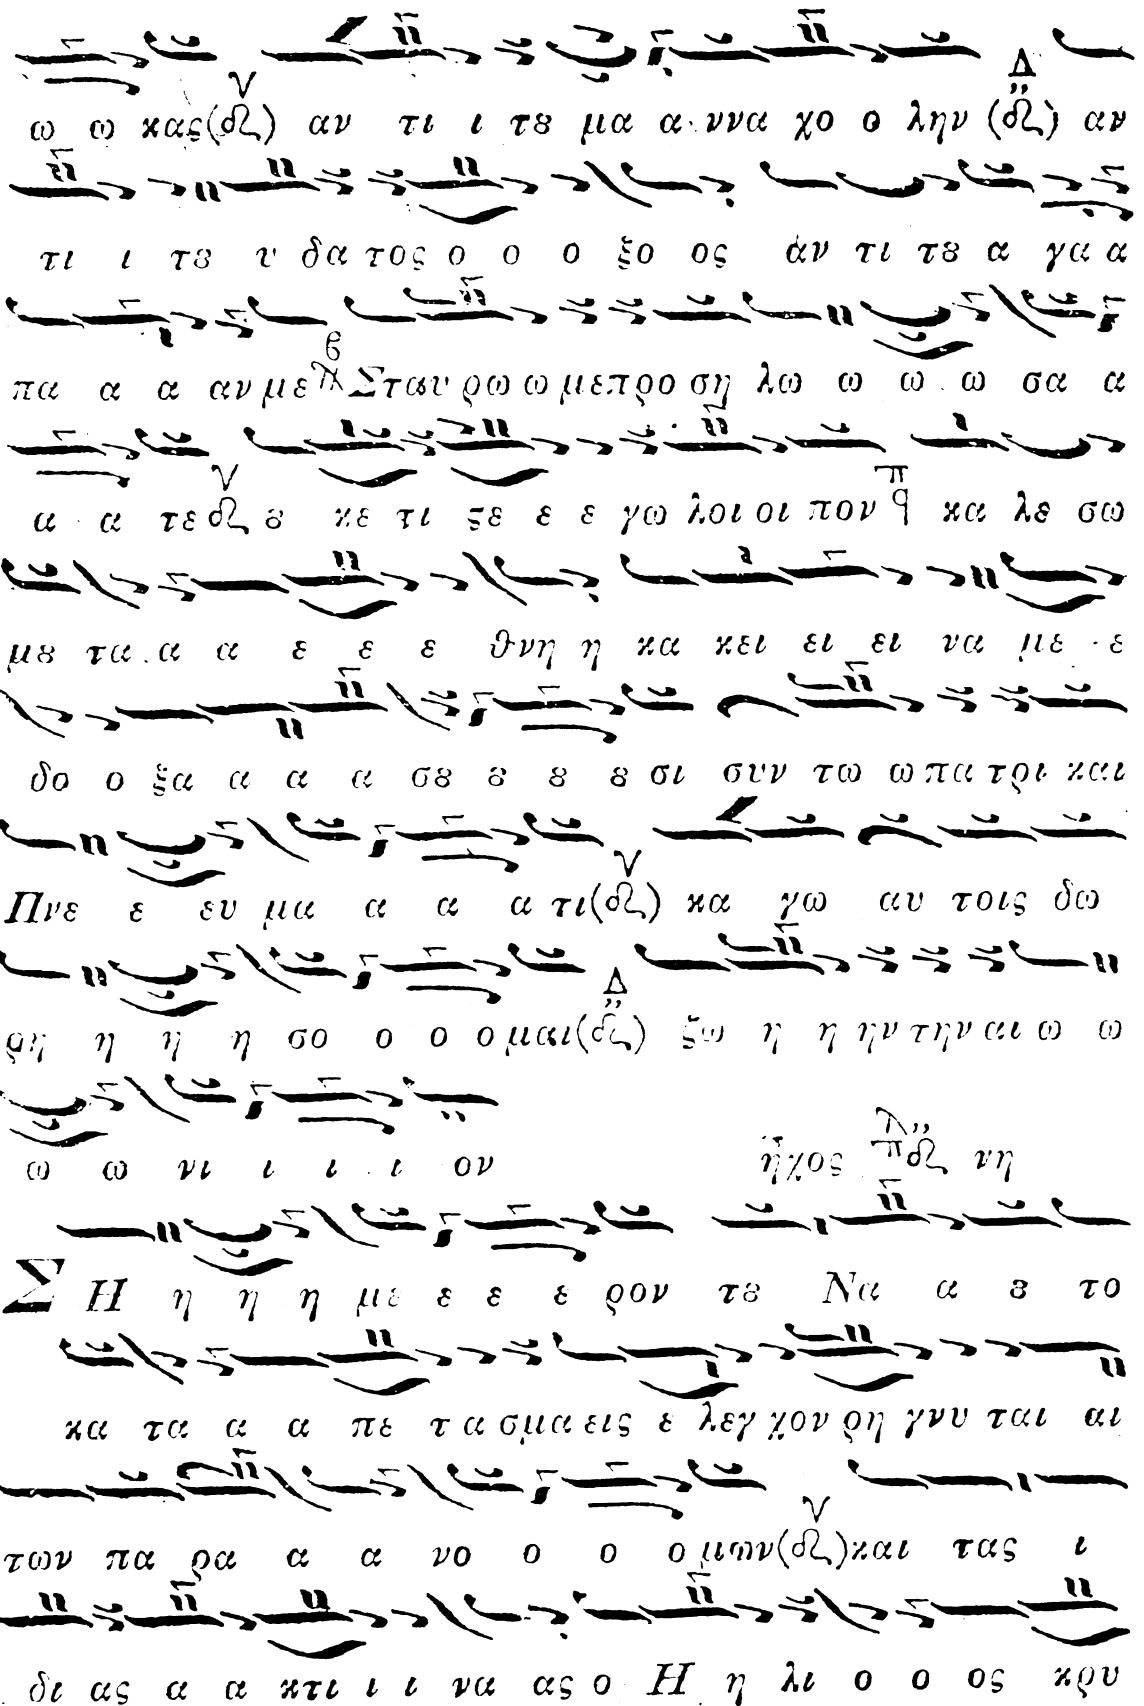 ω ω κας(δ) αν τι ι τȣ μα α ννα χο ο λην (δ) αν
τι ι τȣ υ δα τος ο ο ο ξο ος ἀν τι τȣ α γα α
πα α α αν με Σταυ ρω ω με προ ση λω ω ω ω σα α
α α τε ȣ κε τι ϛε ε ε γω λοι οι πον ϥ κα λε σω
μȣ τα α α ε ε ε θνη η κα κει ει ει να με ε
δο ο ξα α α α σȣ ȣ ȣ ȣ σι συν τω ω πα τρι και
Πνε ε ευ μα α α α τι(δ) κα γω αυ τοις δω
ρη η η η σο ο ο ο μαι(δ) ζω η η ην την αι ω ω
ω ω νι ι ι ι ον ἦχος πδ νη
ΣΗ η η η με ε ε ε ρον τȣ Να α ȣ το
κα τα α α πε τ α σμα εις ε λεγ χον ρη γνυ ται αι
των πα ρα α α νο ο ο ο μων(δ)και τας ι
δι ας α α κτι ι ι να ας ο Η η λι ο ο ος κρυ